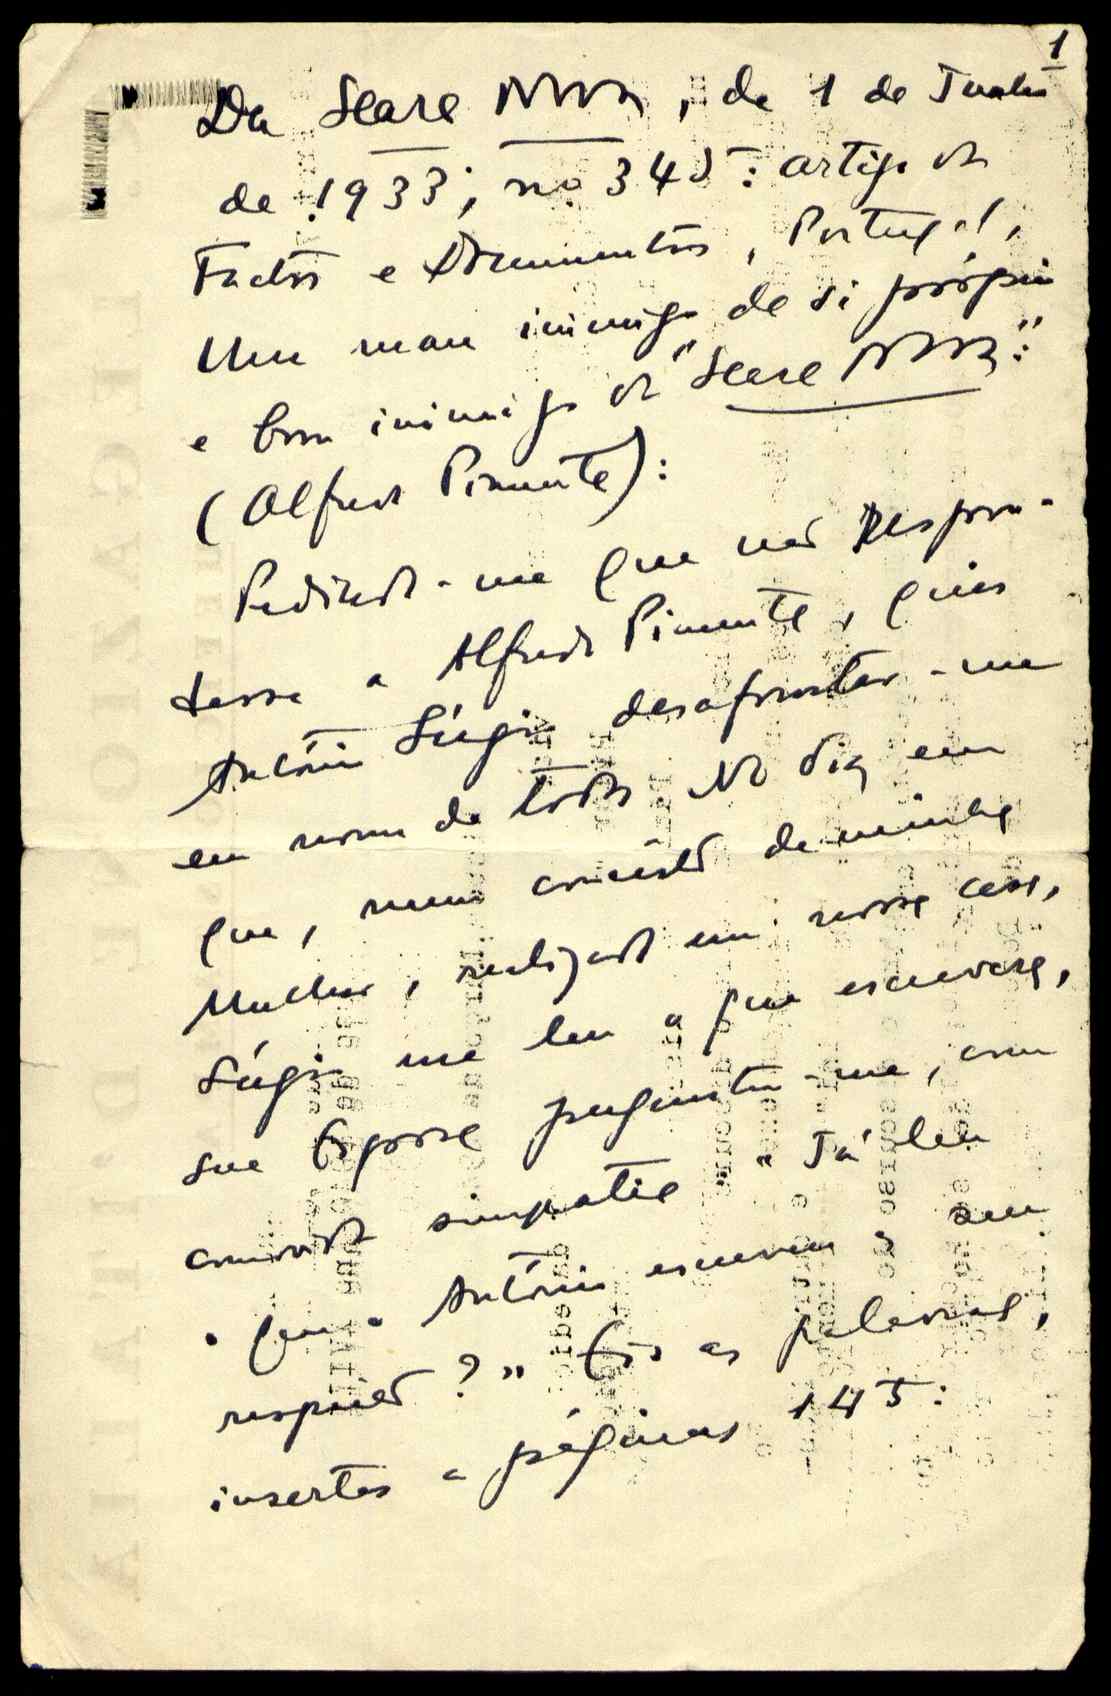 1
Da Seara Nova, de 1 de Junho
de 1933; nº 345: artigo da
Factos e Documentos, Portugal,
Um mau inimigo de si próprio
e bom inimigo da "Seara Nova":
(Alfredo Pimenta):
Pedindo-me que não Respon-
desse a Alfredo Pimenta, quis
António Sérgio desafrontar-me
em nome de todos. No dia em
que, num concêrto de minha
Mulher, realizado em nossa casa,
Sérgio me leu o que escrevera,
sua Esposa perguntou-me, com
comovida simpatia "Já leu
o que o António escreveu a seu
respeito?" Eis as palavras,
insertas a páginas 145: